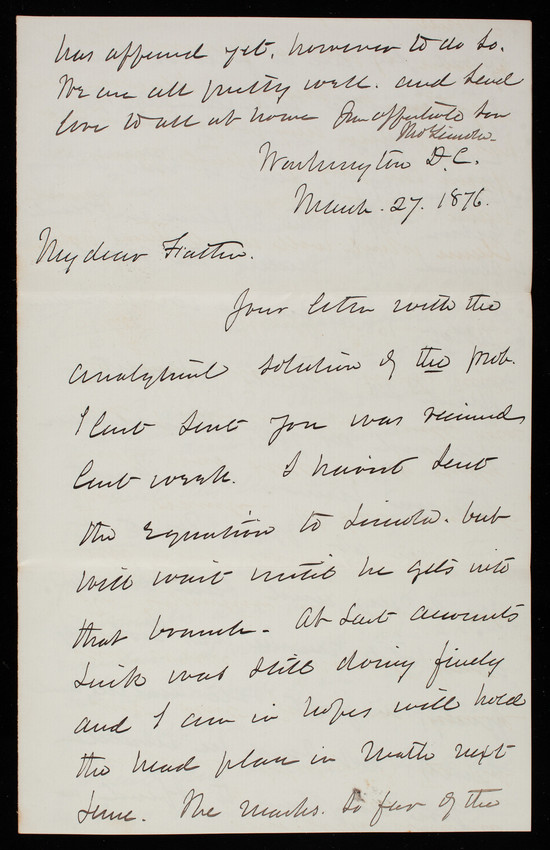 has offered yet, however to do so.
We are all pretty well. and send
love to all at home Your affectionate son
Thos Lincoln.
Washington D.C.
March. 27. 1876.
My dear Father.
Your letter with the
analytical solution of the prob.
I last sent you was received
last week. I havent sent
the Equation to Lincoln. but
will wait until he gets into
that branch. At last accounts
Linck was still doing finely
and I am in hopes will hold
the head place in Math next
June. The marks. so far of the